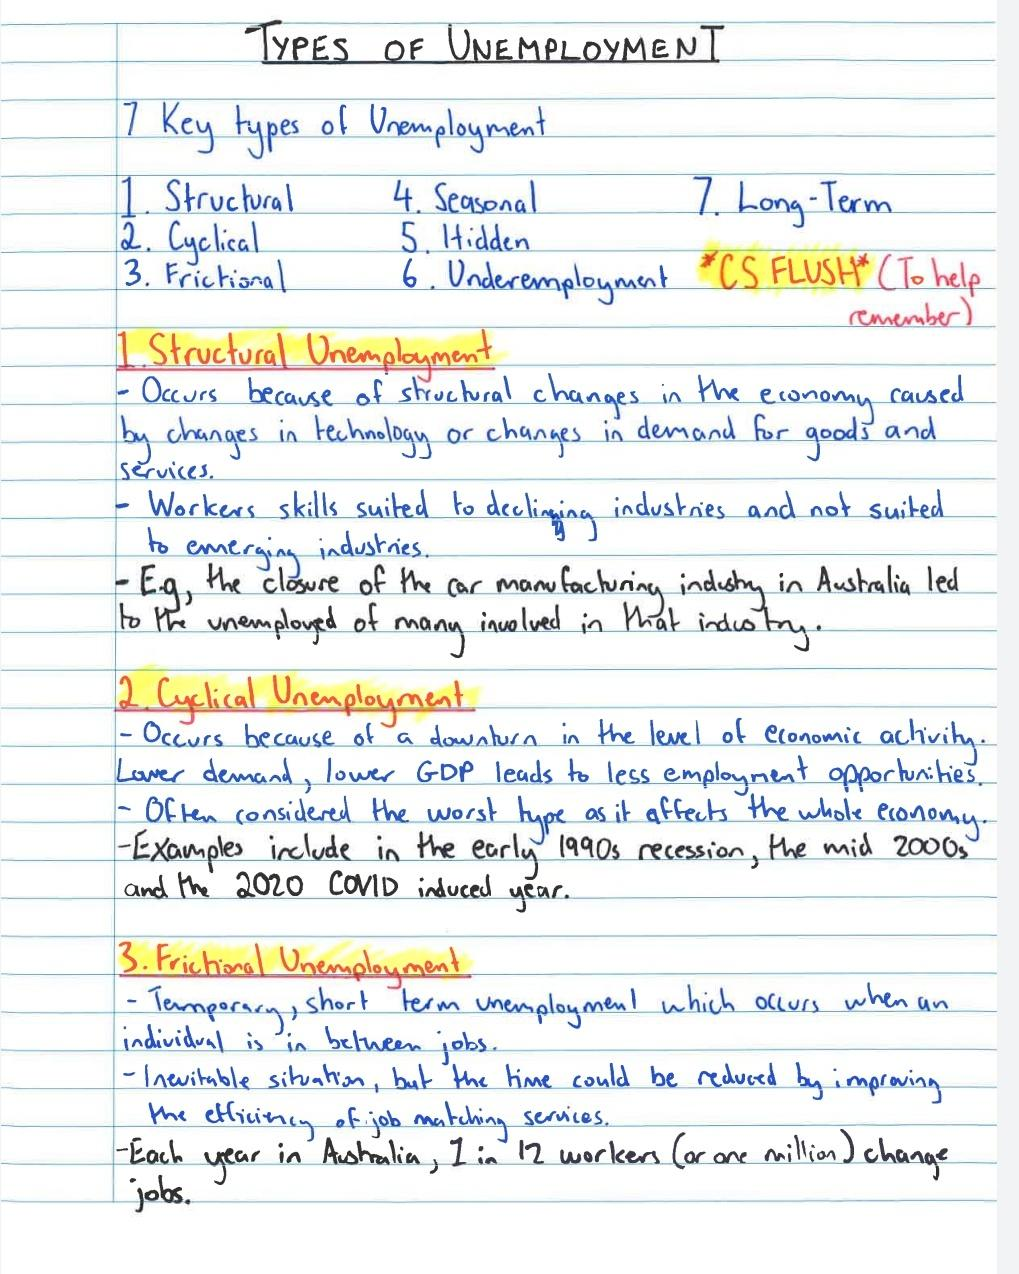 TYPES OF UNEMPLOYMENT
7 Key types of Unemployment
1. Structural 4. Seasonal 7. Long-Term
2. Cyclical 5. Hidden
3. Frictional 6. Underemployment *CS FLUSH* (To help
remember)
1. Structural Unemployment
- Occurs because of structural changes in the economy caused
by changes in technology or changes in demand for goods and
services.
- Workers skills suited to declining industries and not suited
to emerging industries.
- E.g, the closure of the car manufacturing industry in Australia led
to the unemployed of many involved in that industry.
2. Cyclical Unemployment
- Occurs because of a downturn in the level of economic activity.
Lower demand, lower GDP leads to less employment opportunities.
- Often considered the worst type as it affects the whole economy.
- Examples include in the early 1990s recession, the mid 2000s
and the 2020 COVID induced year.
3. Frictional Unemployment
- Temporary, short term unemployment which occurs when an
individual is in between jobs.
- Inevitable situation, but the time could be reduced by improving
the efficiency of job matching services.
- Each year in Australia, 1 in 12 workers (or one million) change
jobs.